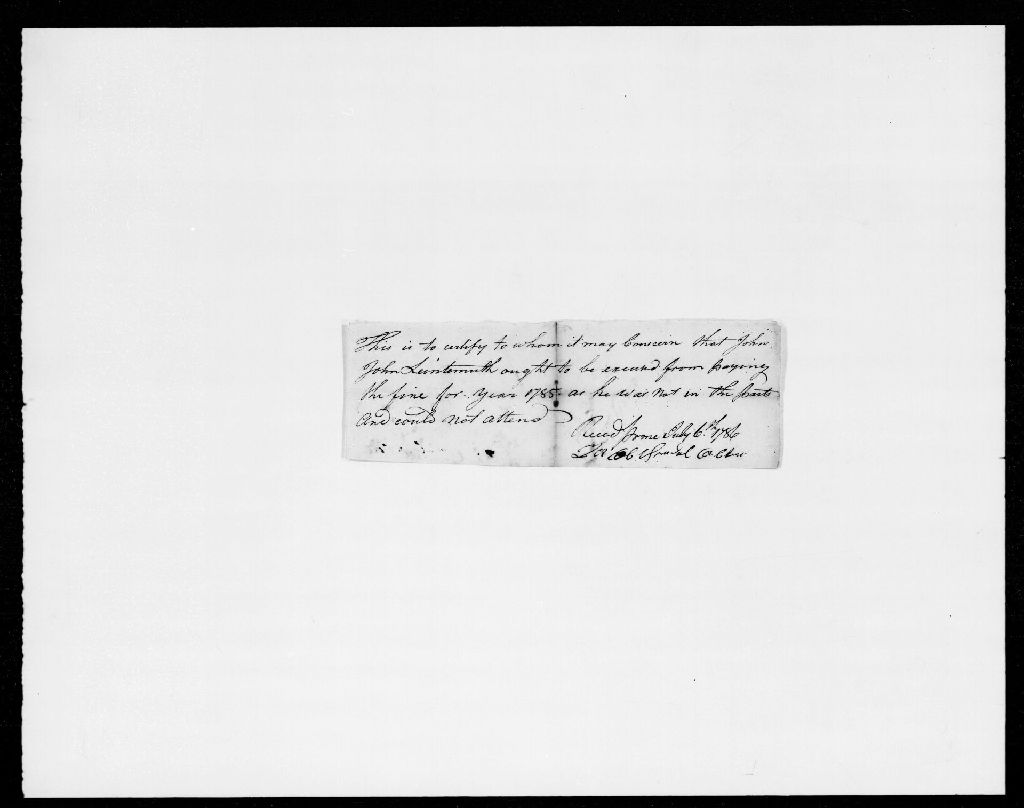 This is to certify to whom it may Concern that John
John Leintemuth ought to be excused from paying
the fine for year 1785 as he was not in the parts
and could not attend
July 6th 1786